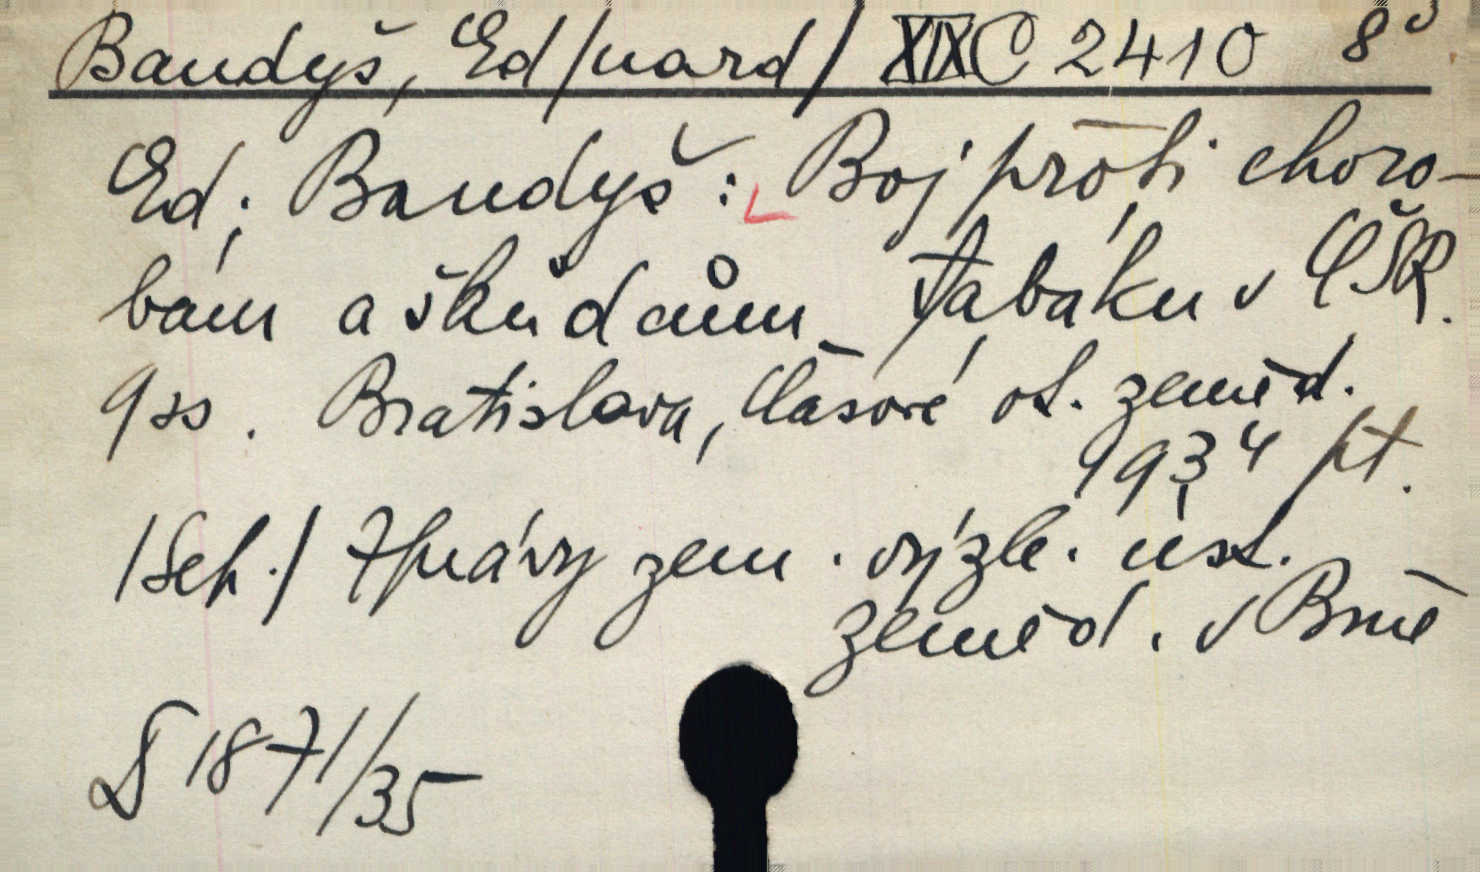 Baudyš, Ed/uard/ XIX C 2410 8°
Ed. Baudyš: Boj proti choro-
bám a škůdcům tabáku v ČSR.
9 ss. Bratislava, Časové ot. zeměd.
1934 pt.
/Sep./ Zprávy zem. výzk. úst.
zeměd. v Brně
D 1871/35